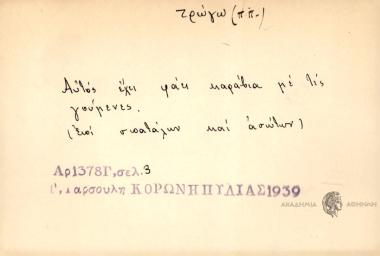 τρώγω (ππ.)
Αὐτός ἔχει φάει καράβια μέ τίς
γούμενες.
(Ἐπί σπατάλων καί ἀσώτων)
Αρ1378Γ, σελ. 3
Γ. Ταρσουλη ΚΟΡΩΝΗ ΠΥΛΙΑΣ 1939
ΑΚΑΔΗΜΙΑ ΑΘΗΝΩΝ